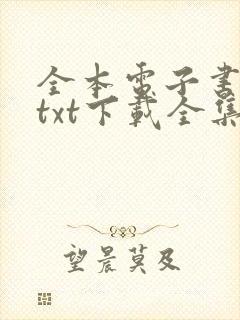 全本電子書
txt下載全集
望晨莫及